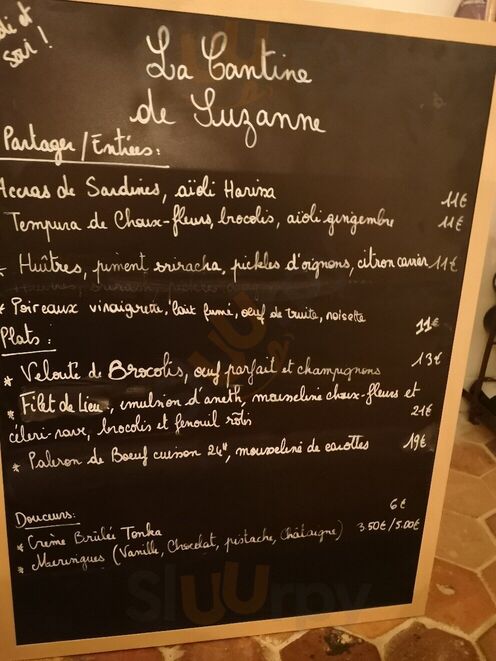 di et
soir !
La Cantine
de Suzanne
Partager / Entrées :
Accras de Sardines, aïoli Harissa 11€
Tempura de Choux-fleurs, brocolis, aïoli gingembre 11€
* Huîtres, piment sriracha, pickles d'oignons, citron caviar 11€
* Poireaux vinaigrette, lait fumé, oeuf de truite, noisette 11€
Plats :
* Velouté de Brocolis, oeuf parfait et champignons 13€
* Filet de Lieu, émulsion d'aneth, mousseline choux-fleurs et
céleri-rave, brocolis et fenouil rôtis 21€
* Paleron de Boeuf cuisson 24H, mousseline de carottes 19€
Douceurs :
* Crème Brûlée Tonka 6€
* Meringues (Vanille, Chocolat, pistache, Châtaigne) 3.50€/5.00€
Sluurpy